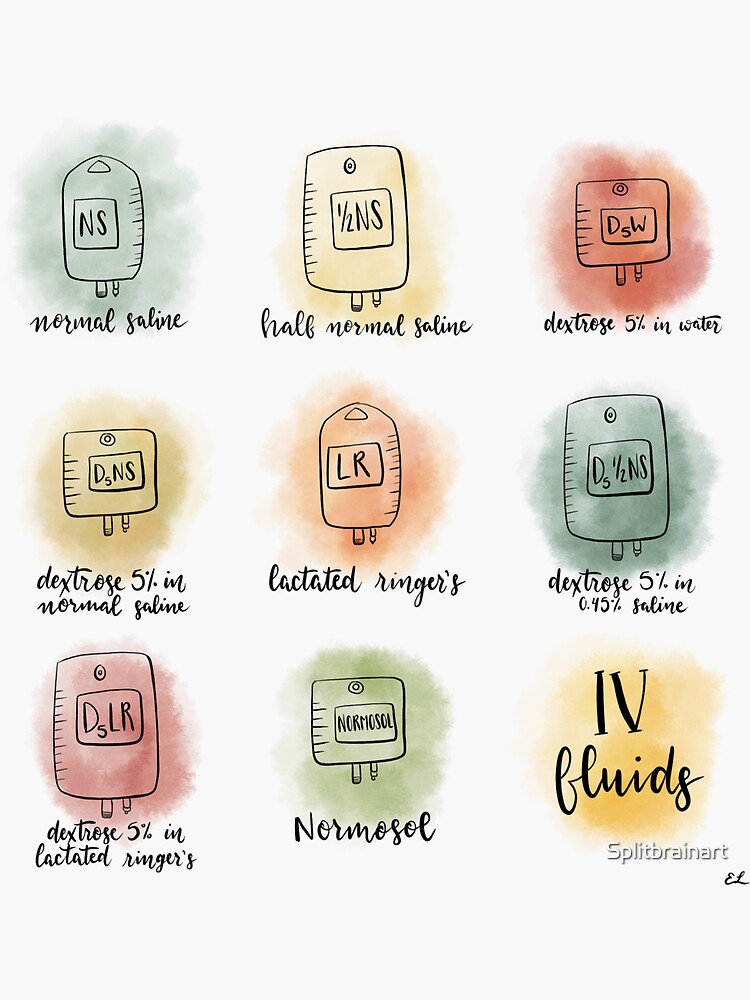 NS
normal saline
½NS
half normal saline
D₅W
dextrose 5% in water
D₅NS
dextrose 5% in
normal saline
LR
lactated ringer's
D₅½NS
dextrose 5% in
0.45% saline
D₅LR
dextrose 5% in
lactated ringer's
NORMOSOL
Normosol
IV
fluids
Splitbrainart
EL